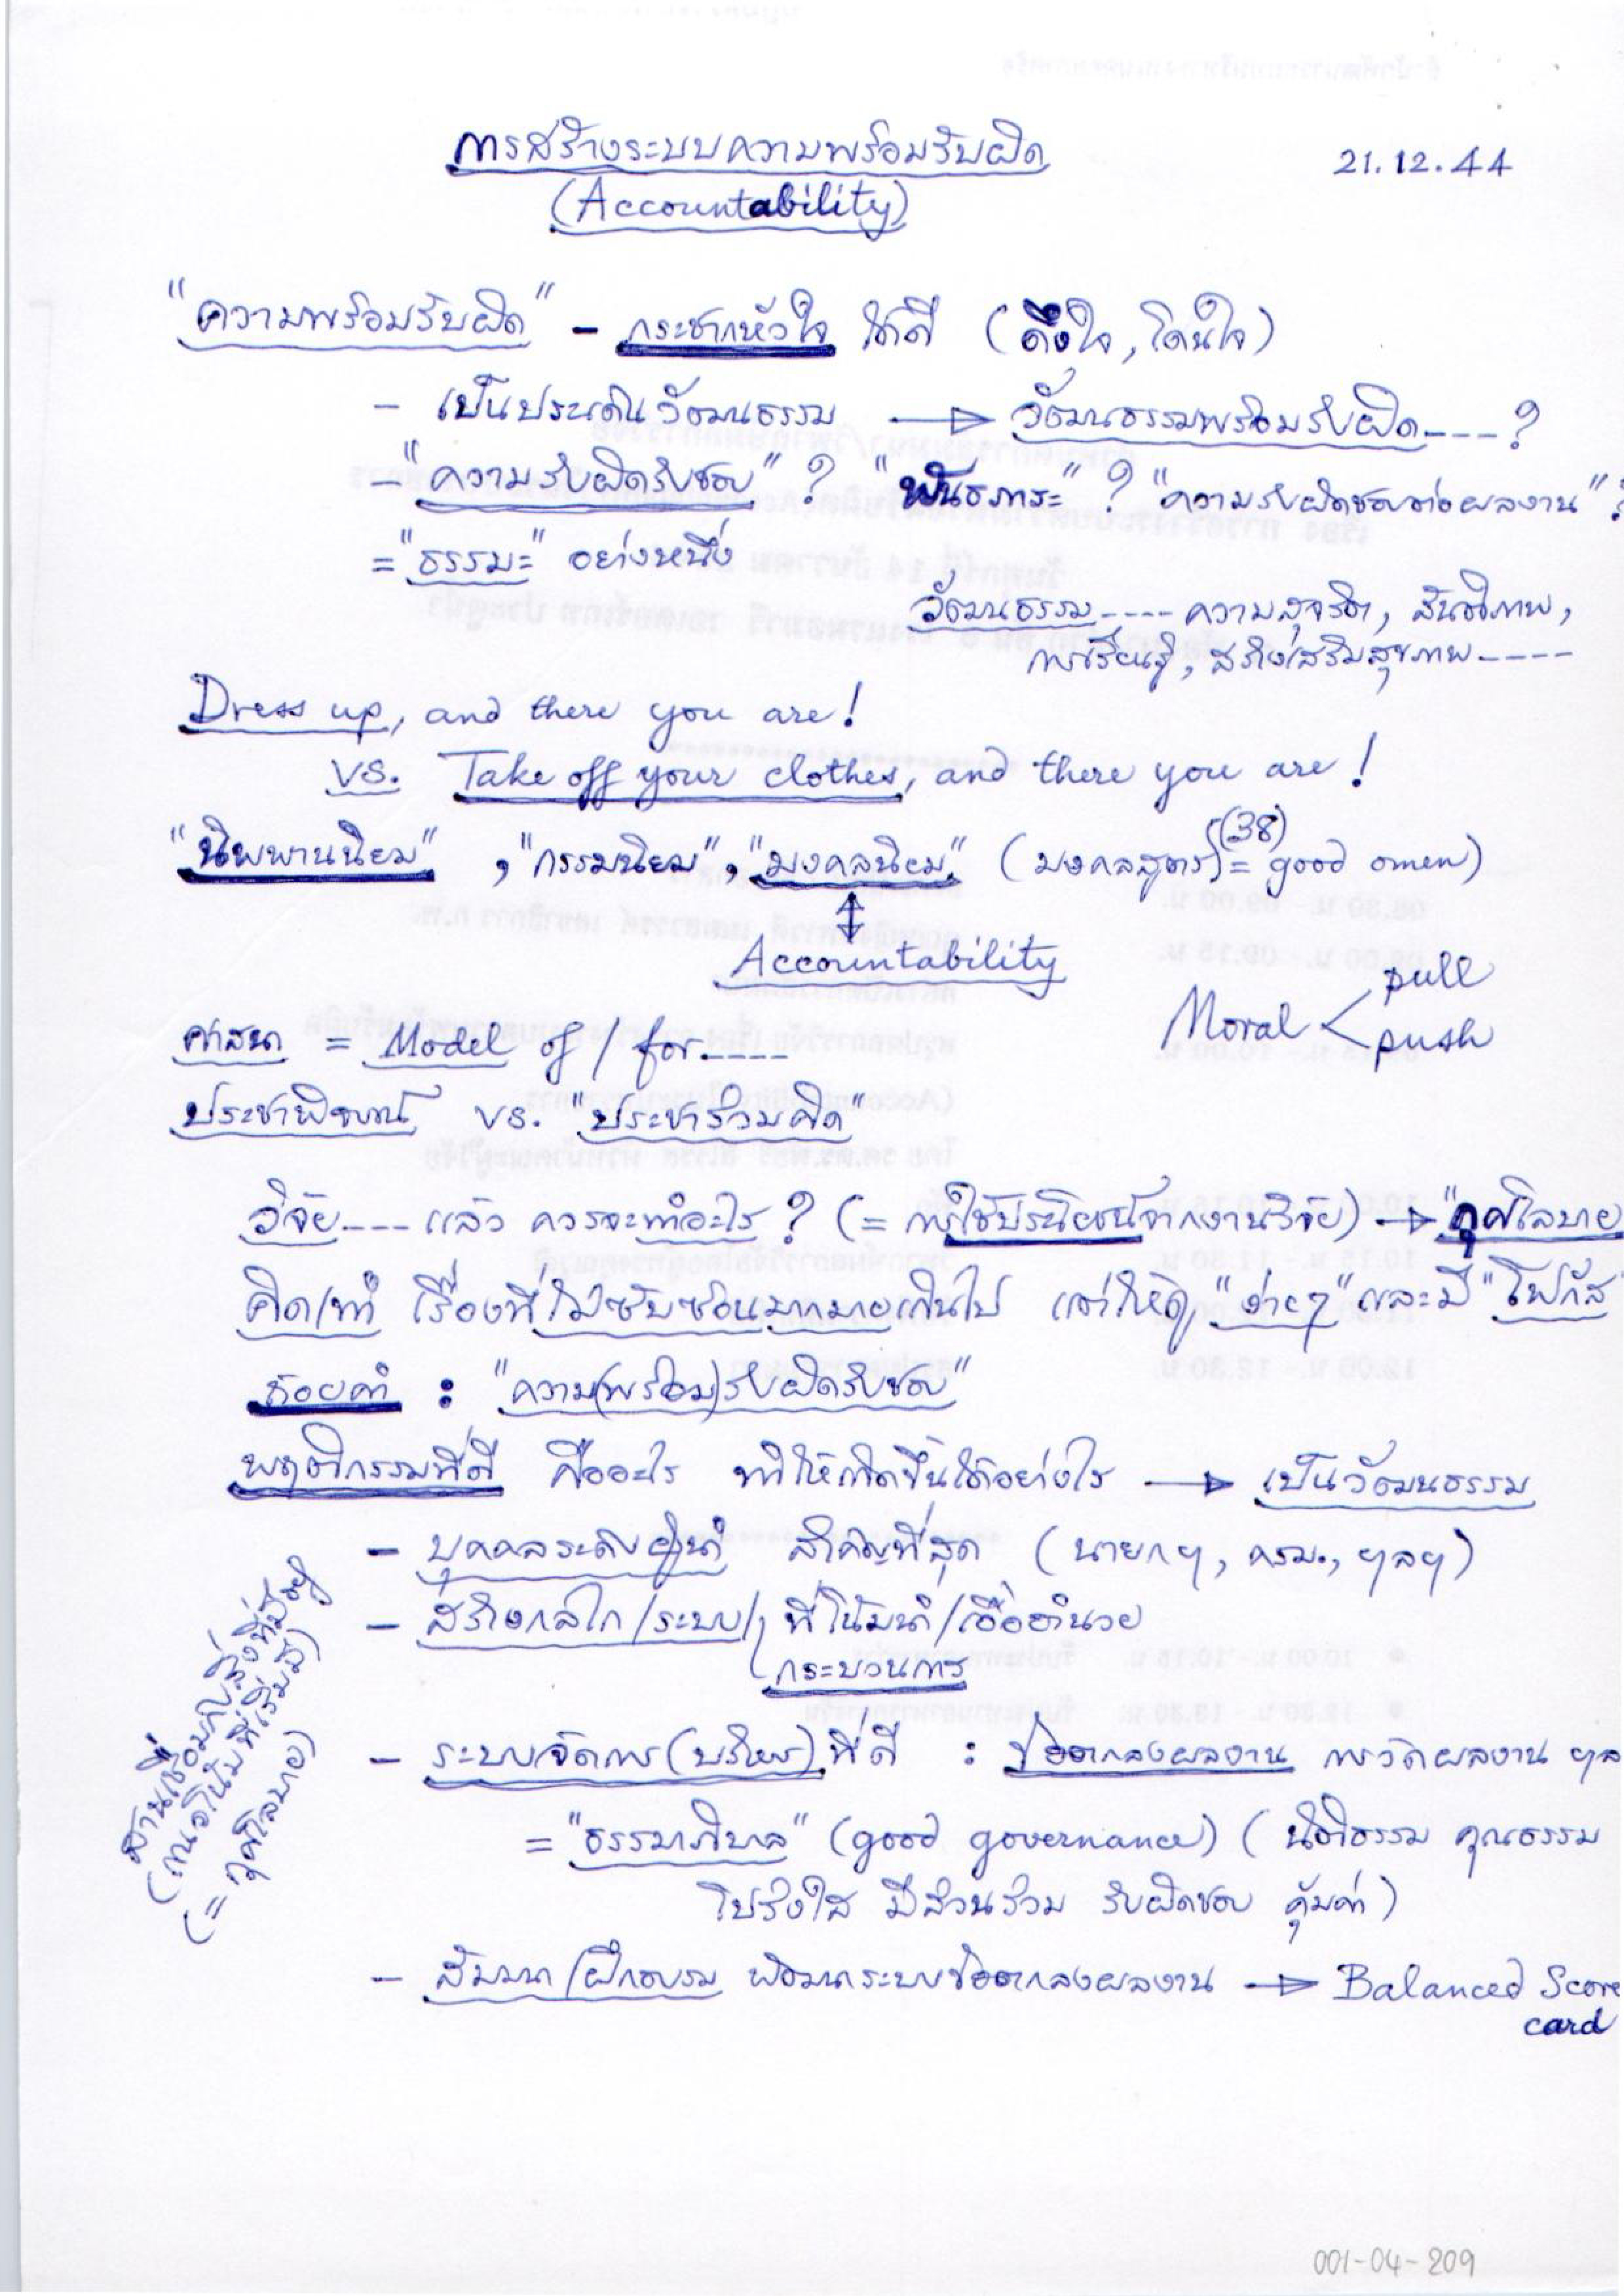 การสร้างระบบความพร้อมรับผิด
21.12.44
(Accountability)
"ความพร้อมรับผิด" - กระชากหัวใจ ได้ดี (ดึงใจ, โดนใจ)
- เป็นประเด็นวัฒนธรรม → วัฒนธรรมพร้อมรับผิด---- ?
- "ความรับผิดรับชอบ" ? "พันธภาระ" ? "ความรับผิดชอบต่อผลงาน" ?
= "ธรรมะ" อย่างหนึ่ง
วัฒนธรรม---- ความสุจริต, สันติภาพ,
การเรียนรู้, สร้างเสริมสุขภาพ----
Dress up, and there you are!
vs. Take off your clothes, and there you are!
"นิพพานนิยม", "กรรมนิยม", "มงคลนิยม" (มงคลสูตร (38) = good omen)
↕
Accountability
Moral < pull
push
ศาสนา = Model of / for----
ประชาพิจารณ์ vs. "ประชาร่วมคิด"
วิจัย---- แล้ว ควรจะทำอะไร ? (= การใช้ประโยชน์จากงานวิจัย) → "กุศโลบาย
คิด/ทำ เรื่องที่ไม่ซับซ้อนมากมายเกินไป แต่ให้ดู "ง่ายๆ" และมี "โฟกัส
ถ้อยคำ : "ความ(พร้อม)รับผิดรับชอบ"
พฤติกรรมที่ดี คืออะไร ทำให้เกิดขึ้นได้อย่างไร → เป็นวัฒนธรรม
- บุคคลระดับผู้นำ สำคัญที่สุด (นายกฯ, ครม., ฯลฯ)
- สร้างกลไก/ระบบ/ ที่โน้มนำ/เอื้ออำนวย
กระบวนการ
- ระบบจัดการ(บริหาร)ที่ดี : ข้อตกลงผลงาน การวัดผลงาน ฯล
= "ธรรมาภิบาล" (good governance) (นิติธรรม คุณธรรม
โปร่งใส มีส่วนร่วม รับผิดชอบ คุ้มค่า)
- สัมมนา/ฝึกอบรม พัฒนาระบบข้อตกลงผลงาน → Balanced Score
card
สานเชื่อมกับสิ่งที่มีอยู่
(แนวโน้มที่เริ่มมี)
(= กุศโลบาย)
001-04-209